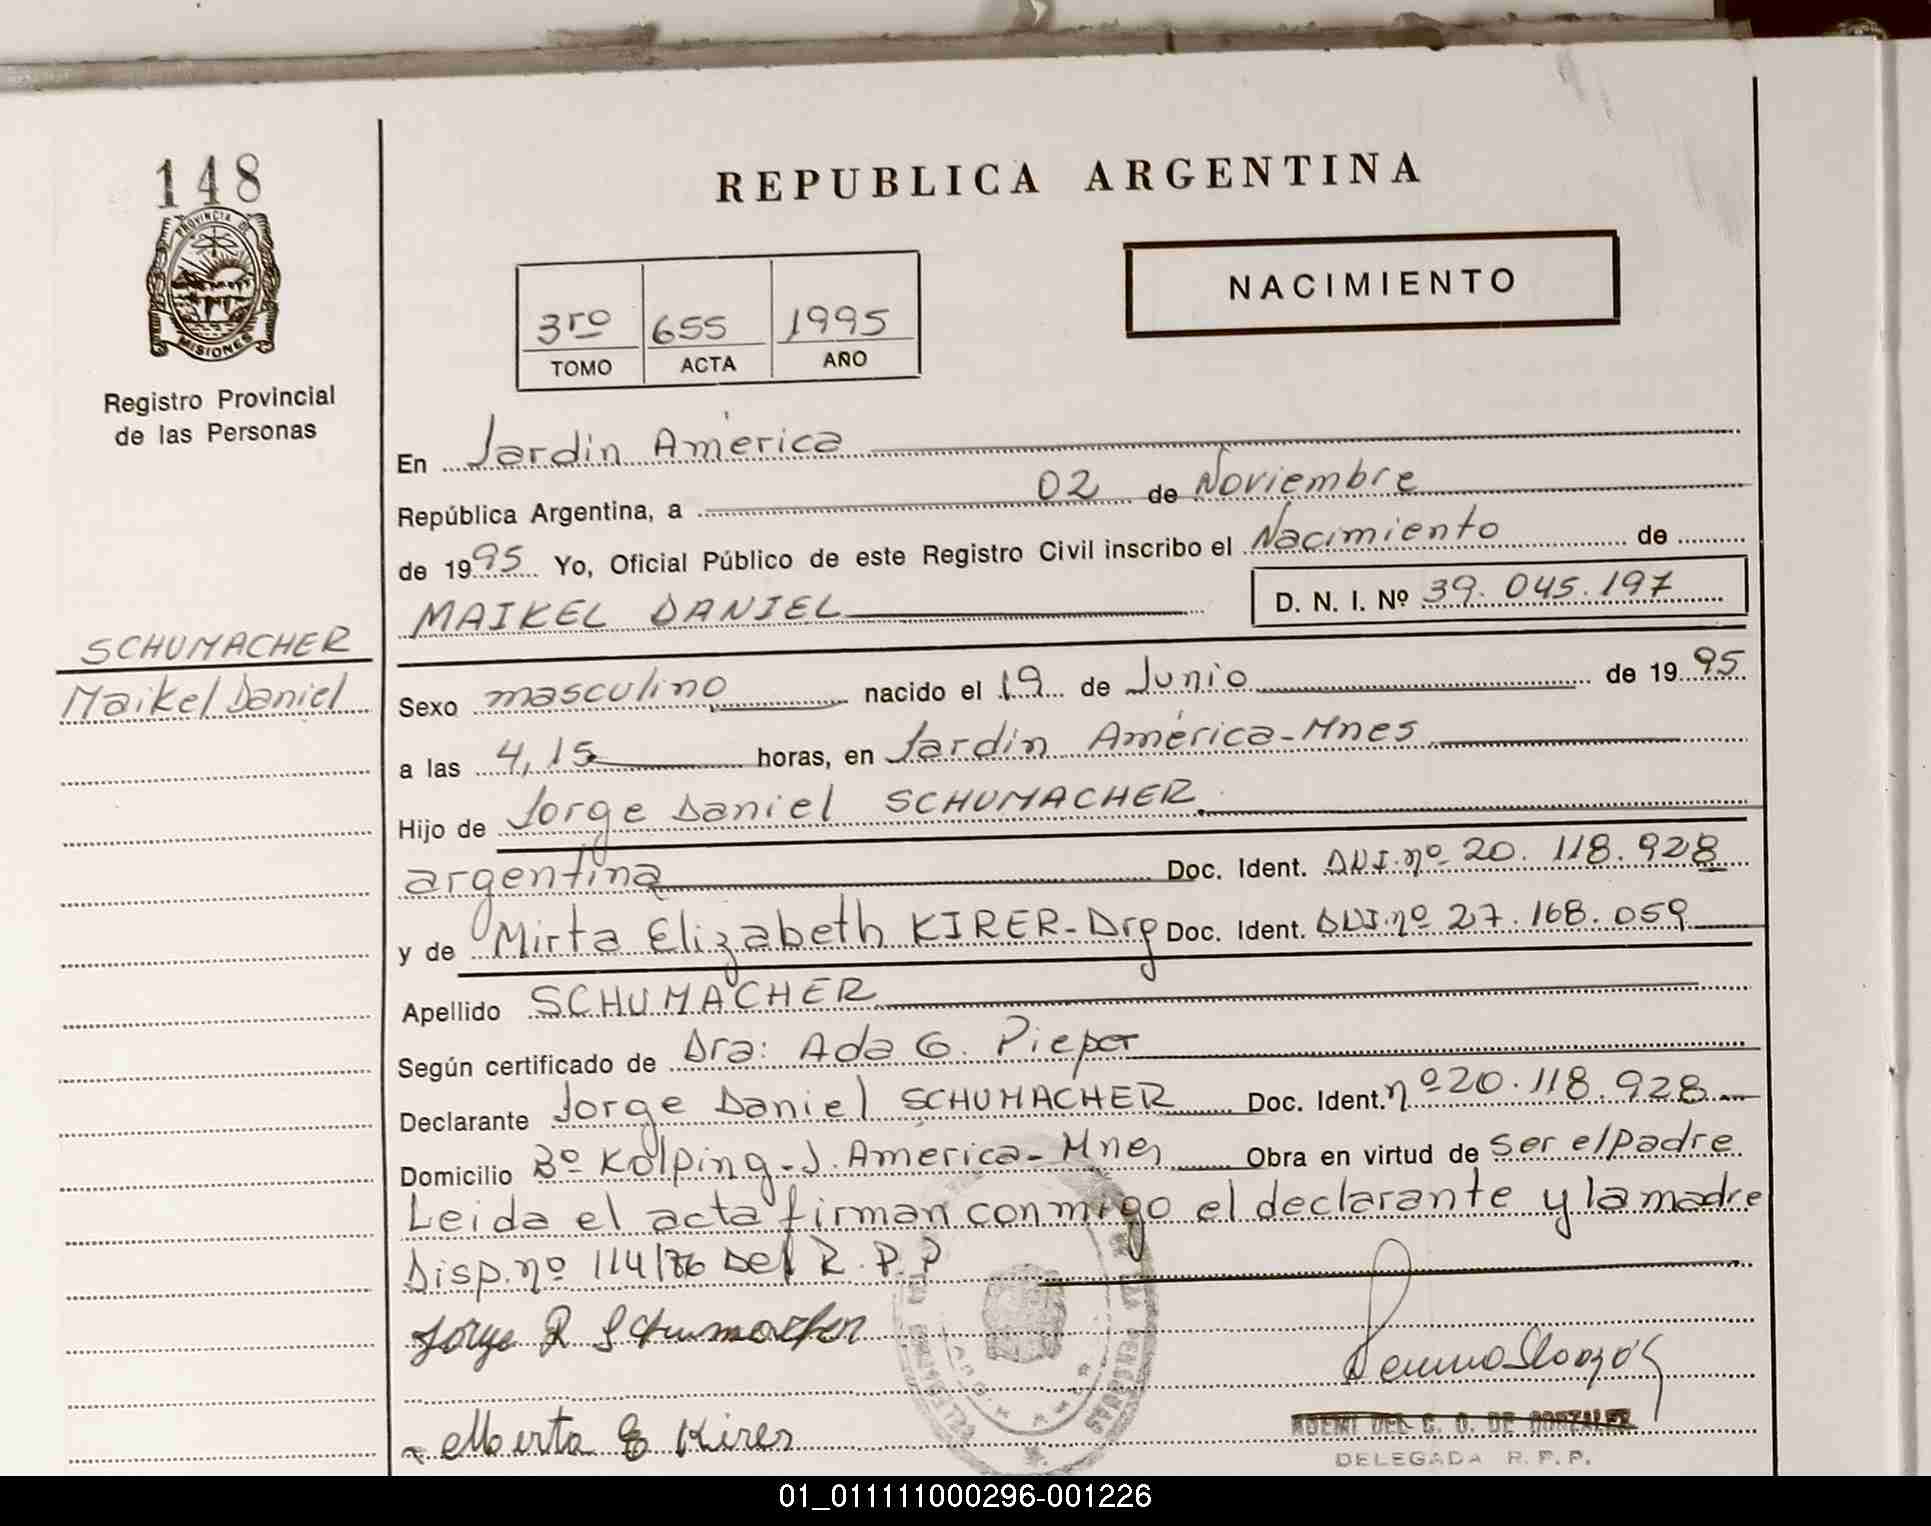 148
PROVINCIA DE
MISIONES
Registro Provincial
de las Personas
SCHUMACHER
Maikel Daniel
REPUBLICA ARGENTINA
NACIMIENTO
3ro 655 1995
TOMO ACTA AÑO
En Jardín América
República Argentina, a 02 de Noviembre
de 1995 Yo, Oficial Público de este Registro Civil inscribo el Nacimiento de
MAIKEL DANIEL D. N. I. Nº 39.045.197
Sexo masculino nacido el 19 de Junio de 1995
a las 4,15 horas, en Jardín América-Mnes
Hijo de Jorge Daniel SCHUMACHER
argentina Doc. Ident. DNI.nº 20.118.928
y de Mirta Elizabeth KIRER-Arg Doc. Ident. DNI.nº 27.168.059
Apellido SCHUMACHER
Según certificado de Dra: Ada G. Pieper
Declarante Jorge Daniel SCHUMACHER Doc. Ident. nº 20.118.928
Domicilio Bº Kolping-J. America-Mnes Obra en virtud de ser el padre
Leida el acta firman conmigo el declarante y la madre
Disp.nº 114/86 Del R.P.P
DE GONZALEZ
DELEGADA R.P.P.
01_011111000296-001226